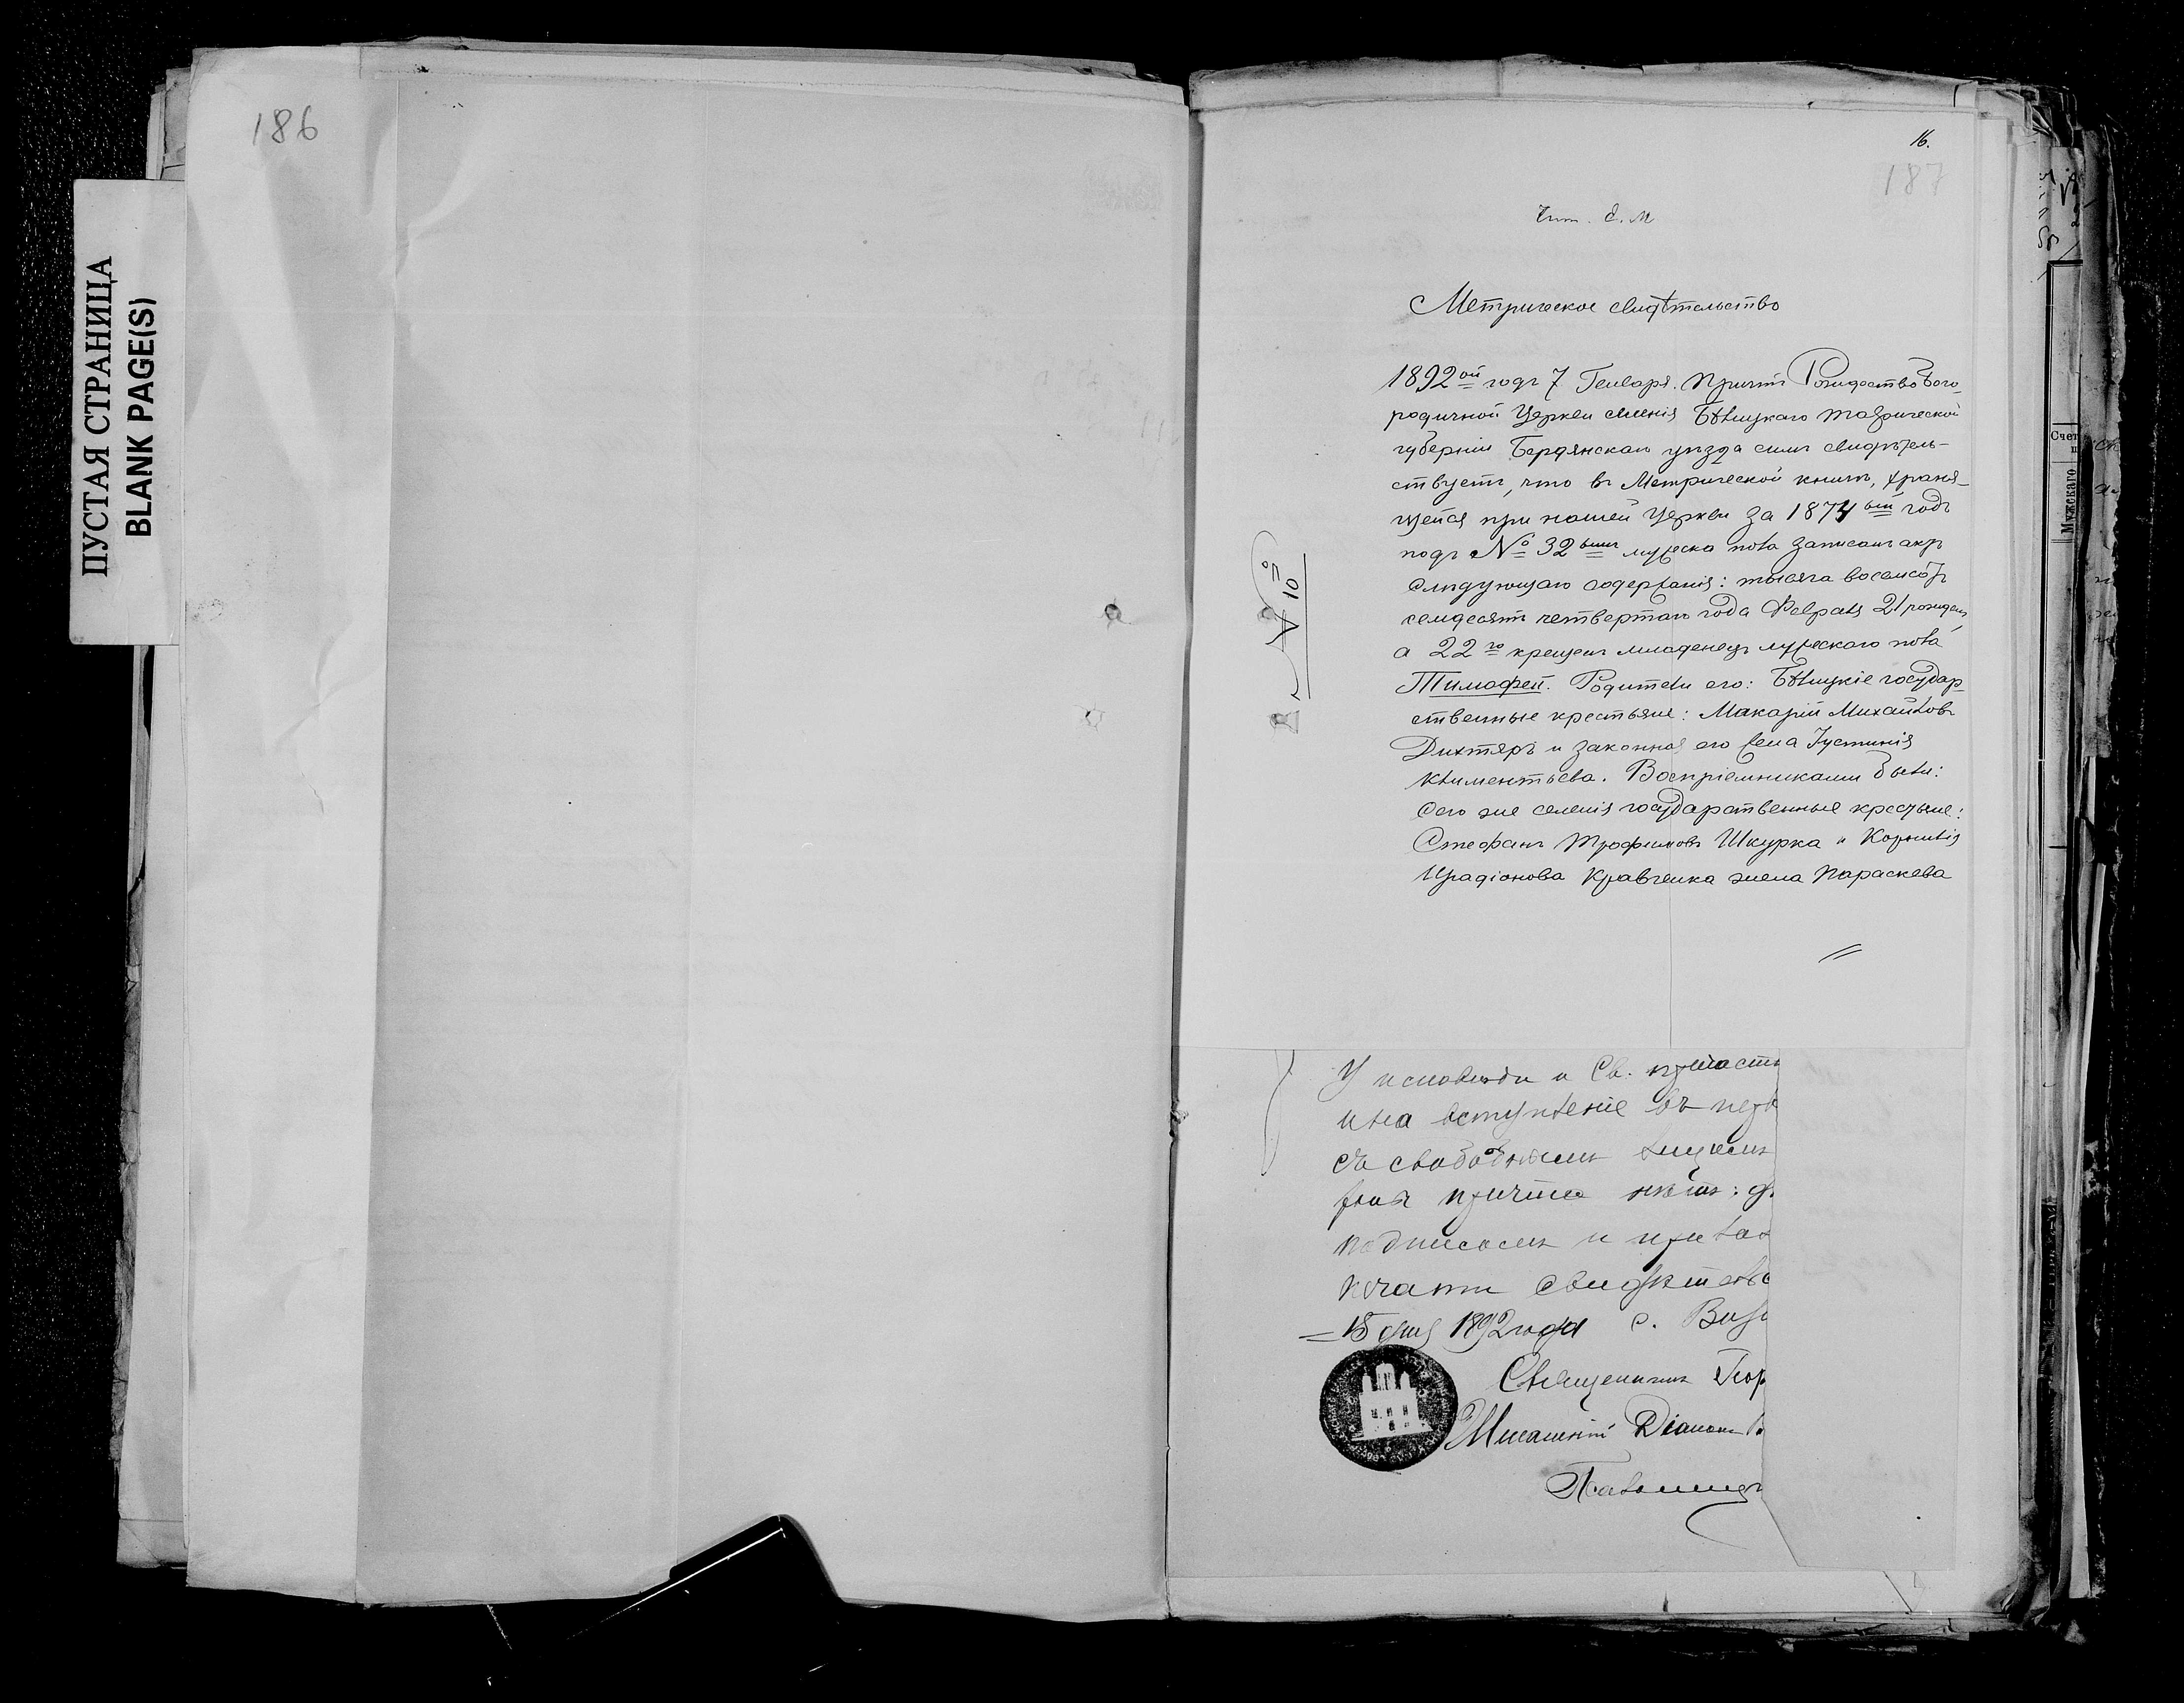 186
ПУСТАЯ СТРАНИЦА
BLANK PAGE(S)
16.
187
Метрическое свидѣтельство
1892ой годъ 7 Генваря. Причтъ Рождество Бого-
родичной Церкви селенія Бѣлицкаго Таврической
губерніи Бердянскаго уѣзда симъ свидѣтель-
ствуетъ, что въ Метрической книгѣ, храня-
щейся при нашей Церкви за 1874ый годъ
подъ № 32ымъ мужеска пола записанъ актъ
слѣдующаго содержанія: тысяча восемсотъ
семдесятъ четвертаго года Февраля 21 рожденъ,
а 22го крещенъ младенецъ мужескаго пола
Тимофей. Родители его: Бѣлицкіе государ-
ственные крестьяне: Макарій Михайловъ
Дихтяръ и законная его жена Іустинія
Климентьева. Воспріемниками были:
Сего же селенія государственные крестьяне:
Стефанъ Трофимовъ Шкурка и Корнилія
Иродіонова Кравченка жена Параскева
№ 10
У исповѣди и Св. причасті
и на вступленіе въ перв
съ свободнымъ лицемъ
причта нѣтъ:
подписомъ и прилож
печати свидѣтельс
15 дня 1892 года с.
Священникъ Геор
Діаконъ
Счет
Мужскаго